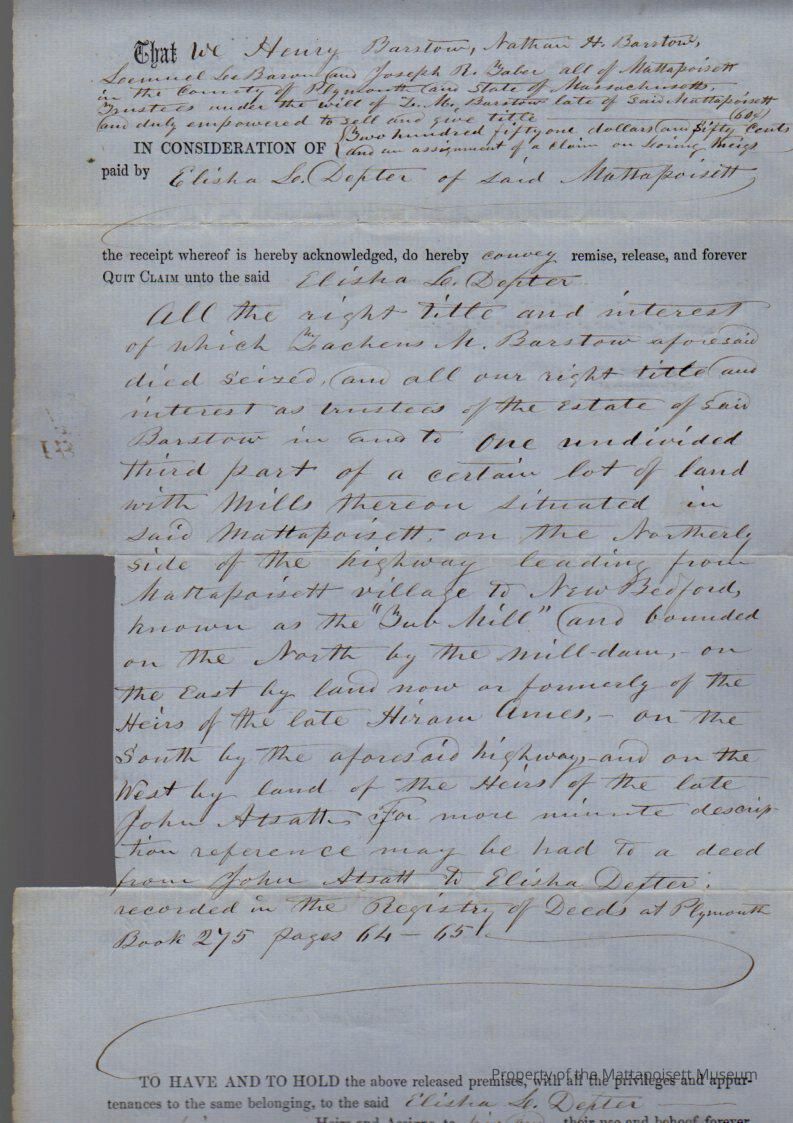 That We Henry Barstow, Nathan H. Barstow,
Lemuel LeBaron and Joseph R. Taber all of Mattapoisett
in the County of Plymouth and State of Massachusetts,
Trustees under the will of Z. M. Barstow late of said Mattapoisett
and duly empowered to sell and give title
IN CONSIDERATION OF { Two hundred fifty one dollars and fifty Cents (60¢)
and an assignment of a claim on Loring Meigs
paid by Elisha L. Dexter of said Mattapoisett,
the receipt whereof is hereby acknowledged, do hereby convey remise, release, and forever
QUIT CLAIM unto the said Elisha L. Dexter
All the right title and interest
of which Zacheus M. Barstow aforesaid
died seized, and all our right title and
interest as trustees of the Estate of said
Barstow in and to One undivided
third part of a certain lot of land
with Mills thereon situated in
said Mattapoisett, on the Northerly
side of the highway leading from
Mattapoisett village to New Bedford,
known as the "Tub Mill" and bounded
on the North by the mill-dam, - on
the East by land now or formerly of the
Heirs of the late Hiram Ames, - on the
South by the aforesaid highway, - and on the
West by land of the Heirs of the late
John Atsatt. For more minute descrip-
tion reference may be had to a deed
from John Atsatt to Elisha Dexter,
recorded in the Registry of Deeds at Plymouth
Book 275 pages 64 - 65.
Property of the Mattapoisett Museum
TO HAVE AND TO HOLD the above released premises, with all the privileges and appur-
tenances to the same belonging, to the said Elisha L. Dexter
Heirs and Assigns, to their use and behoof forever